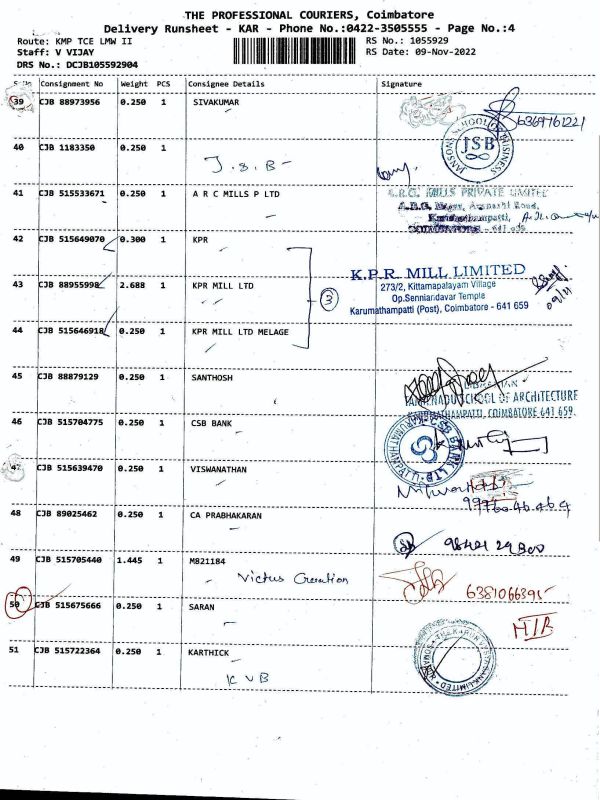 THE PROFESSIONAL COURIERS, Coimbatore
Delivery Runsheet - KAR - Phone No.:0422-3505555 - Page No.:4
Route: KMP TCE LMW II
RS No.: 1055929
Staff: V VIJAY
RS Date: 09-Nov-2022
DRS No.: DCJB105592904
S.No Consignment No Weight PCS Consignee Details Signature
39 CJB 88973956 0.250 1 SIVAKUMAR
6369761221
40 CJB 1183350 0.250 1
J.S.B-
JANSONS SCHOOL OF BUSINESS
JSB
41 CJB 515533671 0.250 1 A R C MILLS P LTD
MILLS PRIVATE LIMITED
Road,
COIMBATORE
42 CJB 515649070 0.300 1 KPR
43 CJB 88955998 2.688 1 KPR MILL LTD
3
K.P.R. MILL LIMITED
273/2, Kittampalayam Village
Op.Senniandavar Temple
Karumathampatti (Post), Coimbatore - 641 659
09/11
44 CJB 515646918 0.250 1 KPR MILL LTD MELAGE
45 CJB 88879129 0.250 1 SANTHOSH
LIBRARIAN
TAMILNADU SCHOOL OF ARCHITECTURE
KARUMATHAMPATTI, COIMBATORE 641 659.
46 CJB 515704775 0.250 1 CSB BANK
CSB BANK LTD
KARUMATHAMPATTI
47 CJB 515639470 0.250 1 VISWANATHAN
48 CJB 89025462 0.250 1 CA PRABHAKARAN
49 CJB 515705440 1.445 1 M821184
Victus Creation
6381066395
50 CJB 515675666 0.250 1 SARAN
51 CJB 515722364 0.250 1 KARTHICK
KVB